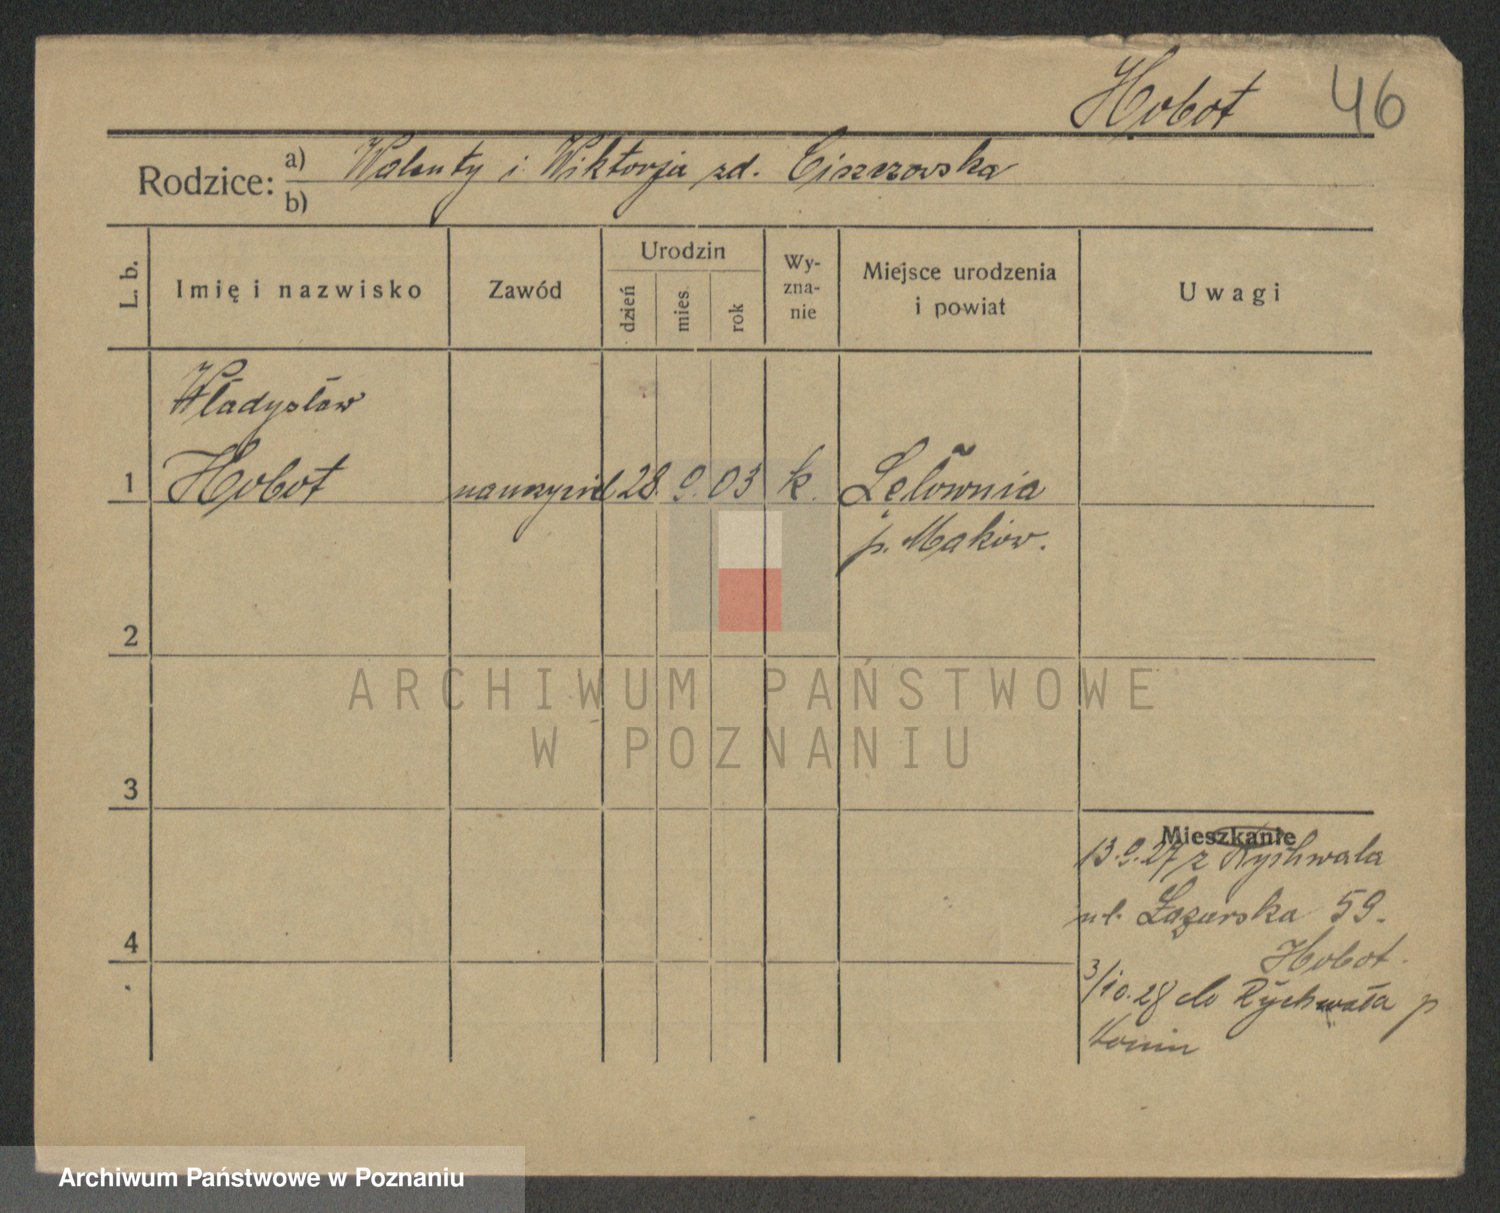 Hobot 46
Rodzice: a) Walenty i Wiktorja zd. Ciszewska
b)
L. b. Imię i nazwisko Zawód Urodzin dzień mies. rok Wyznanie Miejsce urodzenia i powiat Uwagi
Władysław
1 Hobot nauczyciel 28. 9. 03 k. Łętownia
p. Maków.
2
3
Mieszkanie
13.9.27 z Rychwała
ul. Łazarska 59.
4
Hobot.
3/10.28 do Rychwała p
Konin
ARCHIWUM PAŃSTWOWE
W POZNANIU
Archiwum Państwowe w Poznaniu